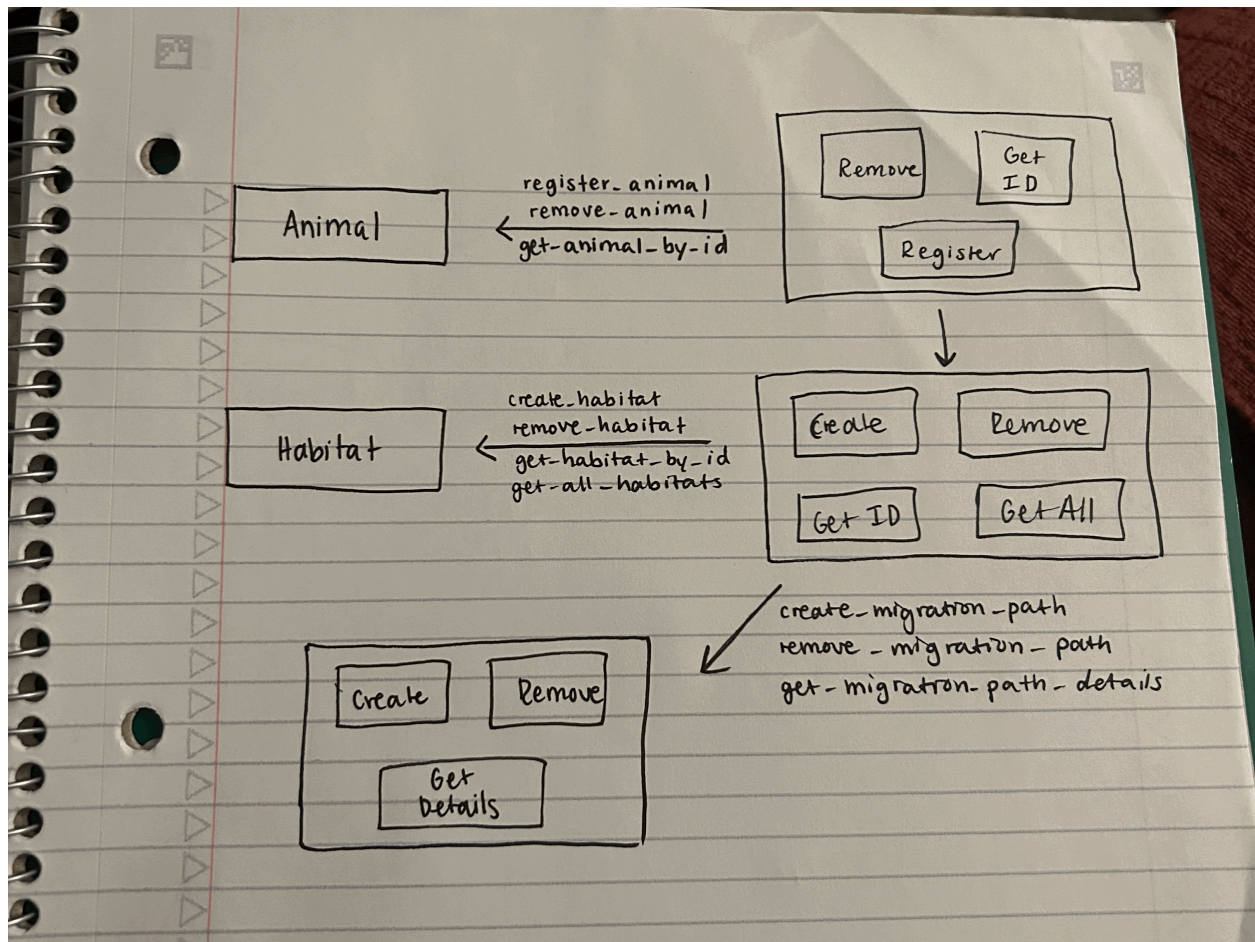 Animal
register_animal
remove_animal
get_animal_by_id
Remove
Get
ID
Register
Habitat
create_habitat
remove_habitat
get_habitat_by_id
get_all_habitats
Create
Remove
Get ID
Get All
create_migration_path
remove_migration_path
get_migration_path_details
Create
Remove
Get
Details